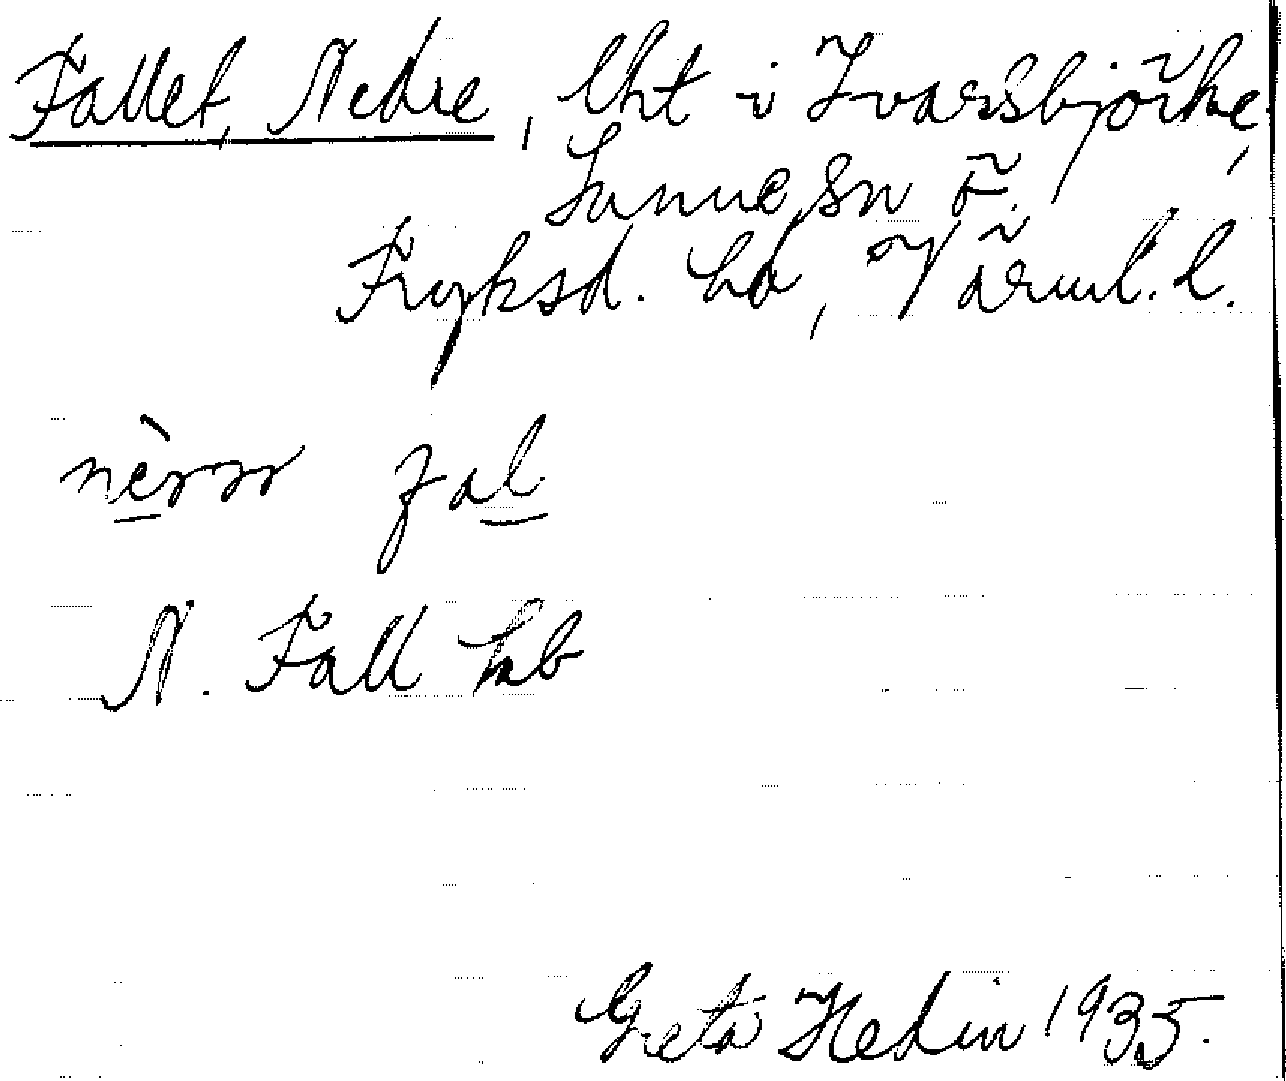 Fallet, Nedre, lht i Ivarsbjörke,
Sunne sn Ö.
Fryksd. hd, Värml. l.
nèrrr fal
N. Fall hab
Greta Hedin 1935.